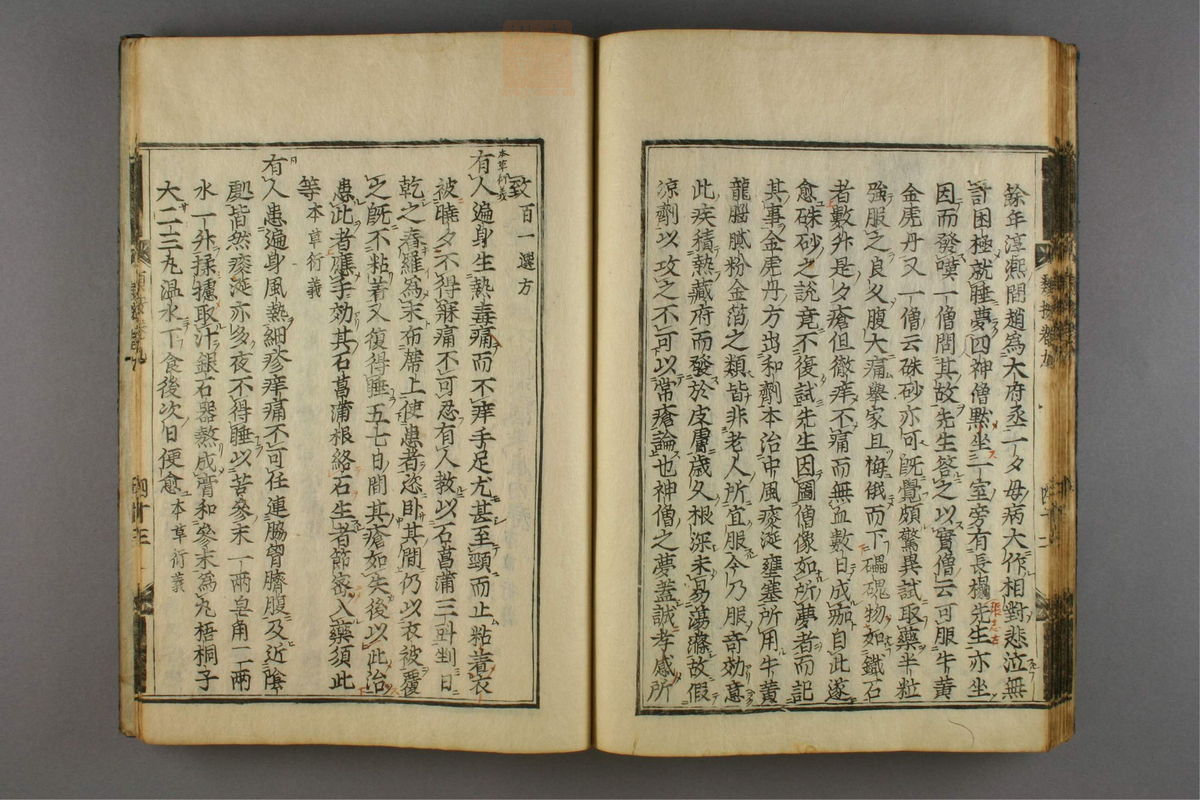 餘年淳熙間趙為大府丞一夕母病大作相對悲泣無
計困極就睡夢四神僧默坐一室旁有長榻先生亦坐
因而發嘆一僧問其故先生答之以實僧云可服牛黃
金虎丹又一僧云硃砂亦可既覺頗驚異試取藥半粒
強服之良久腹大痛舉家且悔俄而下礧磈物如鐵石
者數升是夕瘡但微痒不痛而無血數日成痂自此遂
愈硃砂之說竟不復試先生因圖僧像如所夢者而記
其事金虎丹方出和劑本治中風痰涎壅塞所用牛黃
龍腦膩粉金箔之類皆非老人所宜服今乃服奇効意
此疾積熱藏府而發於皮膚歲久根深未易蕩滌故假
涼劑以攻之不可以常瘡論也神僧之夢蓋誠孝感所
致百一選方
本草衍義
有人遍身生熱毒痛而不痒手足尤甚至頸而止粘着衣
被曉夕不得寐痛不可忍有人教以石菖蒲三斗剉日
乾之舂羅為末布席上使患者恣卧其間仍以衣被覆
之既不粘着又復得睡五七日間其瘡如失後以此治
患此者應手効其石菖蒲根絡石生者節密入藥須此
等本草衍義
有人患遍身風熱細疹痒痛不可任連脇胷臍腹及近陰
處皆然痰涎亦多夜不得睡以苦參末一兩皂角二兩
水一升揉攄取汁銀石器熬成膏和參末為丸梧桐子
大二三十丸溫水下食後次日便愈本草衍義